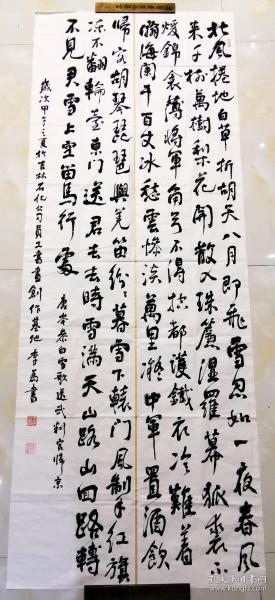 北風捲地白草折胡天八月即飛雪忽如一夜春風
来千樹萬樹梨花開散入珠簾濕羅幕狐裘不
煖錦衾薄將軍角弓不得控都護鐵衣冷難着
瀚海闌干百丈冰愁雲慘淡萬里凝中軍置酒飲
歸客胡琴琵琶與羌笛紛紛暮雪下轅門風掣紅旗
凍不翻輪臺東門送君去去時雪滿天山路山回路轉
不見君雪上空留馬行處 唐岑參白雪歌送武判官歸京
歲次甲午之夏於吉林石化公司員工書畫創作基地 李為書